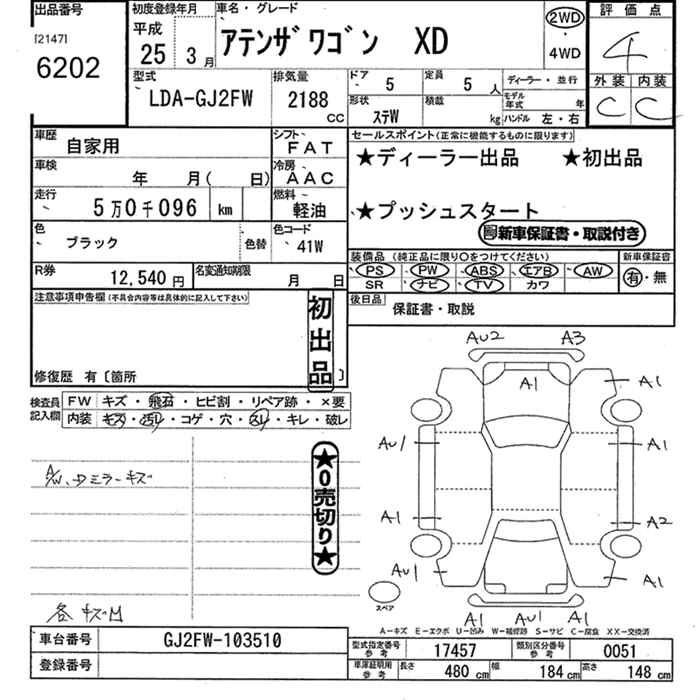 出品番号
[2147]
6202
初度登録年月
平成
25 3月
車名・グレード
アテンザワゴン XD
2WD
・
4WD
評価点
4
外装 内装
C C
型式
LDA-GJ2FW
排気量
2188
CC
ドア 5
定員 5 人
ディーラー・並行
モデル年式 年
形状
ステW
積載 kg
ハンドル 左・右
車歴
自家用
シフト
FAT
セールスポイント(正常に機能するものに限ります)
★ディーラー出品 ★初出品
車検
年 月( 日)
冷房
AAC
走行
5万0千096 km
燃料
軽油
★プッシュスタート
新車保証書・取説付き
色
ブラック
色替
色コード
41W
装備品 (純正品に限り○をつけてください)
新車保証書
PS PW ABS エアB AW
有・無
SR ナビ TV カワ
R券
12,540 円
名変通知期限
月 日
後日品
保証書・取説
注意事項申告欄(不具合内容等は具体的に記入して下さい)
初出品
修復歴 有〔箇所 〕
検査員記入欄
FW キズ・飛石・ヒビ割・リペア跡・×要
内装 キズ・汚れ・コゲ・穴・スレ・キレ・破レ
AU2 A3
A1
A1
AU1 A1
A/W、ドミラーキズ
★0売切り★
A1 A2
AU1 A1
スペア
各キズ凹
A1 AU1 A1
A-キズ E-エクボ U-凹み W-補修跡 S-サビ C-腐食 XX-交換済
車台番号
GJ2FW-103510
登録番号
型式指定番号
参考
17457
類別区分番号
参考
0051
車庫証明用
参考
長さ 480 cm
幅 184 cm
高さ 148 cm